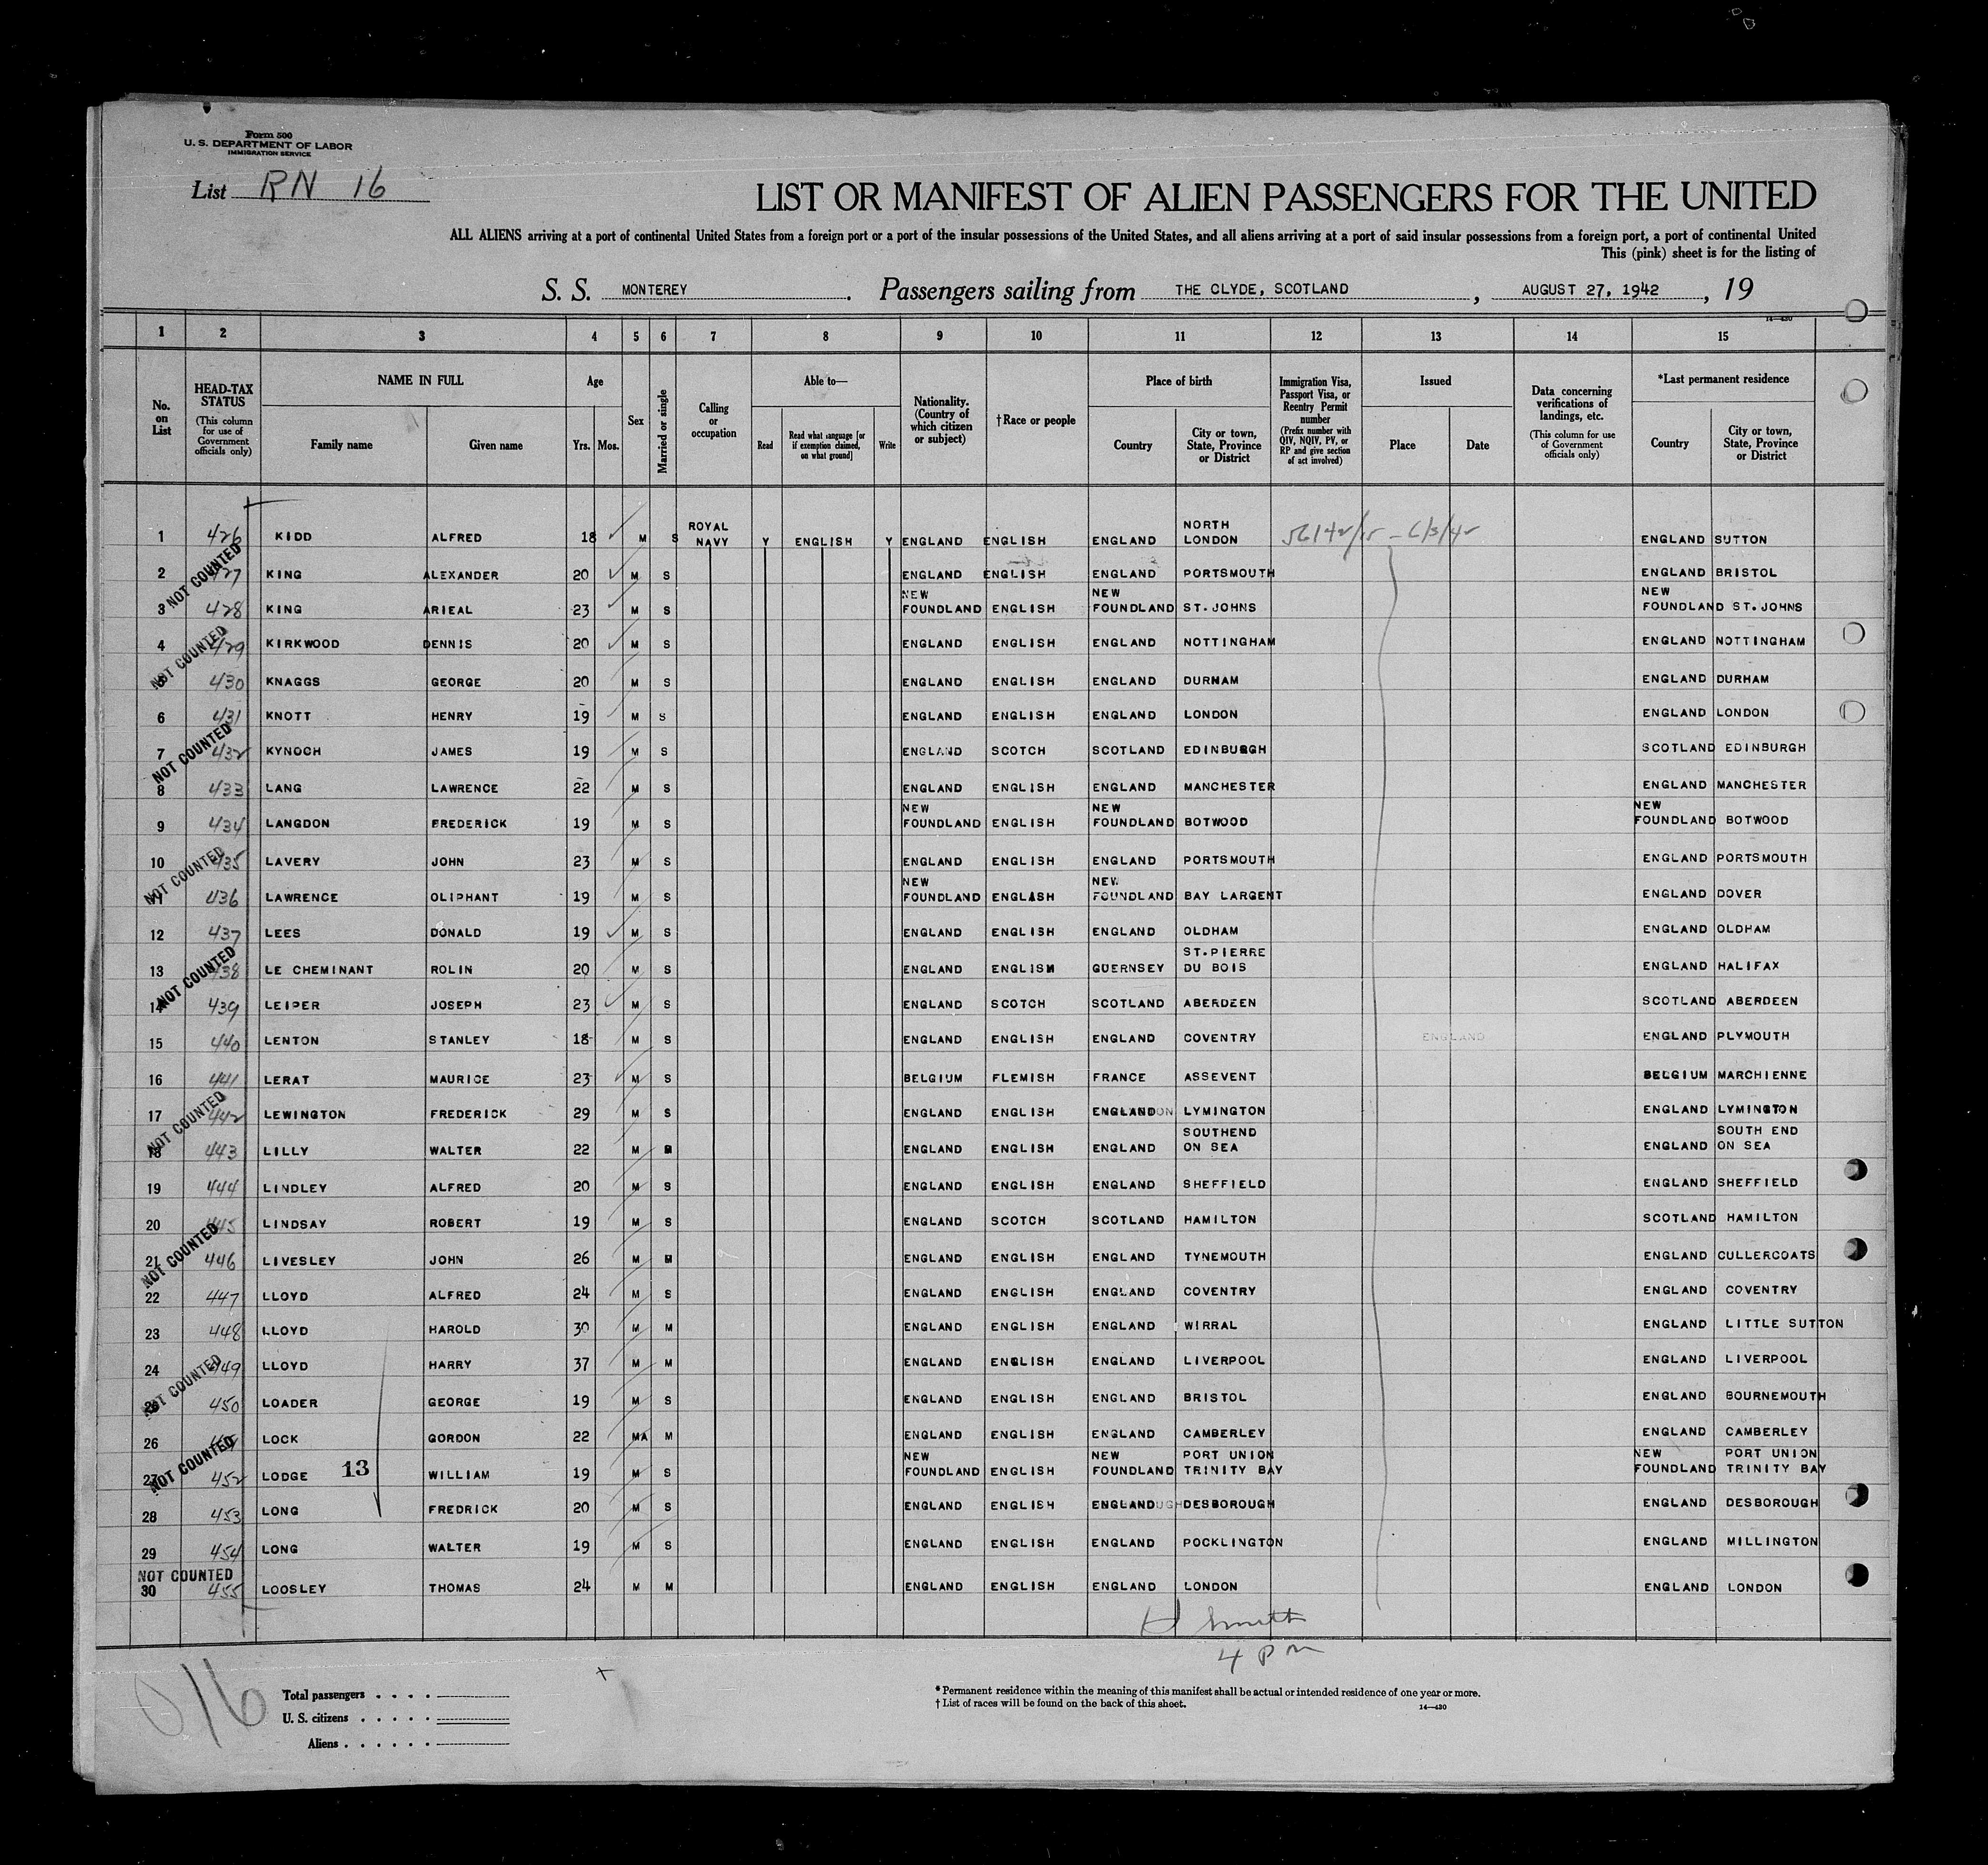 Form 500
U. S. DEPARTMENT OF LABOR
IMMIGRATION SERVICE
List RN 16
LIST OR MANIFEST OF ALIEN PASSENGERS FOR THE UNITED
ALL ALIENS arriving at a port of continental United States from a foreign port or a port of the insular possessions of the United States, and all aliens arriving at a port of said insular possessions from a foreign port, a port of continental United
This (pink) sheet is for the listing of
S. S. MONTEREY . Passengers sailing from THE CLYDE, SCOTLAND , AUGUST 27, 1942 , 19
14—430
1 2 3 4 5 6 7 8 9 10 11 12 13 14 15
No. on List
HEAD-TAX STATUS (This column for use of Government officials only)
NAME IN FULL
Family name Given name
Age
Yrs. Mos.
Sex
Married or single
Calling or occupation
Able to—
Read
Read what language [or if exemption claimed, on what ground]
Write
Nationality. (Country of which citizen or subject)
†Race or people
Place of birth
Country
City or town, State, Province or District
Immigration Visa, Passport Visa, or Reentry Permit number (Prefix number with QIV, NQIV, PV, or RP and give section of act involved)
Issued
Place Date
Data concerning verifications of landings, etc. (This column for use of Government officials only)
*Last permanent residence
Country
City or town, State, Province or District
1 426 KIDD ALFRED 18 M S ROYAL NAVY Y ENGLISH Y ENGLAND ENGLISH ENGLAND NORTH LONDON ENGLAND SUTTON
2 427 KING ALEXANDER 20 M S ENGLAND ENGLISH ENGLAND PORTSMOUTH ENGLAND BRISTOL
NOT COUNTED
3 428 KING ARIEAL 23 M S NEW FOUNDLAND ENGLISH NEW FOUNDLAND ST.JOHNS NEW FOUNDLAND ST.JOHNS
4 429 KIRKWOOD DENNIS 20 M S ENGLAND ENGLISH ENGLAND NOTTINGHAM ENGLAND NOTTINGHAM
NOT COUNTED
5 430 KNAGGS GEORGE 20 M S ENGLAND ENGLISH ENGLAND DURHAM ENGLAND DURHAM
6 431 KNOTT HENRY 19 M S ENGLAND ENGLISH ENGLAND LONDON ENGLAND LONDON
7 432 KYNOCH JAMES 19 M S ENGLAND SCOTCH SCOTLAND EDINBURGH SCOTLAND EDINBURGH
NOT COUNTED
8 433 LANG LAWRENCE 22 M S ENGLAND ENGLISH ENGLAND MANCHESTER ENGLAND MANCHESTER
9 434 LANGDON FREDERICK 19 M S NEW FOUNDLAND ENGLISH NEW FOUNDLAND BOTWOOD NEW FOUNDLAND BOTWOOD
10 435 LAVERY JOHN 23 M S ENGLAND ENGLISH ENGLAND PORTSMOUTH ENGLAND PORTSMOUTH
NOT COUNTED
11 436 LAWRENCE OLIPHANT 19 M S NEW FOUNDLAND ENGLASH NEW FOUNDLAND BAY LARGENT ENGLAND DOVER
12 437 LEES DONALD 19 M S ENGLAND ENGLISH ENGLAND OLDHAM ENGLAND OLDHAM
13 438 LE CHEMINANT ROLIN 20 M S ENGLAND ENGLISH GUERNSEY ST.PIERRE DU BOIS ENGLAND HALIFAX
NOT COUNTED
14 439 LEIPER JOSEPH 23 M S ENGLAND SCOTCH SCOTLAND ABERDEEN SCOTLAND ABERDEEN
15 440 LENTON STANLEY 18 M S ENGLAND ENGLISH ENGLAND COVENTRY ENGLAND ENGLAND PLYMOUTH
16 441 LERAT MAURICE 23 M S BELGIUM FLEMISH FRANCE ASSEVENT BELGIUM MARCHIENNE
17 442 LEWINGTON FREDERICK 29 M S ENGLAND ENGLISH ENGLAND LYMINGTON ENGLAND LYMINGTON
NOT COUNTED
18 443 LILLY WALTER 22 M M ENGLAND ENGLISH ENGLAND SOUTHEND ON SEA ENGLAND SOUTH END ON SEA
19 444 LINDLEY ALFRED 20 M S ENGLAND ENGLISH ENGLAND SHEFFIELD ENGLAND SHEFFIELD
20 445 LINDSAY ROBERT 19 M S ENGLAND SCOTCH SCOTLAND HAMILTON SCOTLAND HAMILTON
NOT COUNTED
21 446 LIVESLEY JOHN 26 M M ENGLAND ENGLISH ENGLAND TYNEMOUTH ENGLAND CULLERCOATS
22 447 LLOYD ALFRED 24 M S ENGLAND ENGLISH ENGLAND COVENTRY ENGLAND COVENTRY
23 448 LLOYD HAROLD 30 M M ENGLAND ENGLISH ENGLAND WIRRAL ENGLAND LITTLE SUTTON
24 449 LLOYD HARRY 37 M M ENGLAND ENGLISH ENGLAND LIVERPOOL ENGLAND LIVERPOOL
NOT COUNTED
25 450 LOADER GEORGE 19 M S ENGLAND ENGLISH ENGLAND BRISTOL ENGLAND BOURNEMOUTH
26 LOCK GORDON 22 MA M ENGLAND ENGLISH ENGLAND CAMBERLEY ENGLAND CAMBERLEY
NOT COUNTED
27 452 LODGE 13 WILLIAM 19 M S NEW FOUNDLAND ENGLISH NEW FOUNDLAND PORT UNION TRINITY BAY NEW FOUNDLAND PORT UNION TRINITY BAY
28 453 LONG FREDRICK 20 M S ENGLAND ENGLISH ENGLAND DESBOROUGH ENGLAND DESBOROUGH
29 454 LONG WALTER 19 M S ENGLAND ENGLISH ENGLAND POCKLINGTON ENGLAND MILLINGTON
NOT COUNTED
30 455 LOOSLEY THOMAS 24 M M ENGLAND ENGLISH ENGLAND LONDON ENGLAND LONDON
Smith
4 PM
Total passengers . . . .
U. S. citizens . . . . .
Aliens . . . . . .
* Permanent residence within the meaning of this manifest shall be actual or intended residence of one year or more.
† List of races will be found on the back of this sheet.
14—430